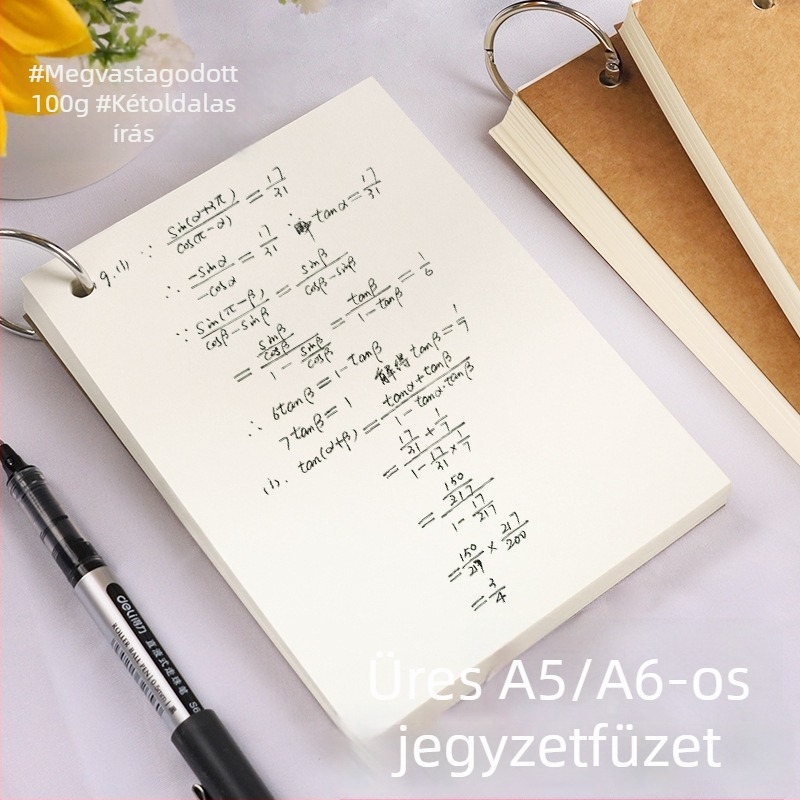 #Megvastagodott
100g #Kétoldalas
írás
9.(1) ∵ sin(α+2π)/cos(π-α) = 17/31
∴ -sinα/-cosα = 17/31 ∴ tanα = 17/31
∵ sin(π-β)/cosβ-sinβ = sinβ/cosβ-sinβ
= sinβ/cosβ/1 - sinβ/cosβ = tanβ/1-tanβ = 1/6
∴ 6tanβ = 1-tanβ 解得 tanβ = 1/7
7tanβ = 1
(1). tan(α+β) = tanα+tanβ/1-tanα·tanβ
= 17/31 + 1/7/1 - 17/31 × 1/7
= 150/217/1 - 17/217
= 150/217 × 217/200
= 3/4
deli得力 直液式走珠笔
ROLLER BALL PEN
Üres A5/A6-os
jegyzetfüzet